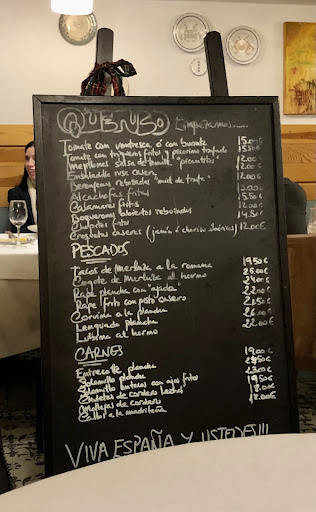 Empezamos.....
Tomate con ventresca ó con burrata 15.00€
Tomate con trigueros fritos y pecorino trufado 15.50€
Mejillones salsa de tomate "picantitos" 12.00€
Ensaladilla rusa casera 12.00€
Berenjenas rebozadas "miel de trufa"
Alcachofas fritas
Calamares fritos
Boquerones abiertos rebozados
fritos 14.50€
Croquetas caseras (jamón ó chorizo ibérico) 12.00€
PESCADOS
Tacos de Merluza a la romana 19.50€
Cogote de Merluza al horno
Rape plancha con "ajada"
Rape frito con pisto casero
Corvina a la plancha
Lenguado plancha
Lubina al horno 22.00€
CARNES
Entrecote plancha 19.00€
Solomillo plancha
Solomillo butacas con ajos fritos
Chuletas de cordero lechal 19.50€
Mollejas de cordero 18.00€
Callos a la madrileña 18.00€
VIVA ESPAÑA Y USTEDES!!!